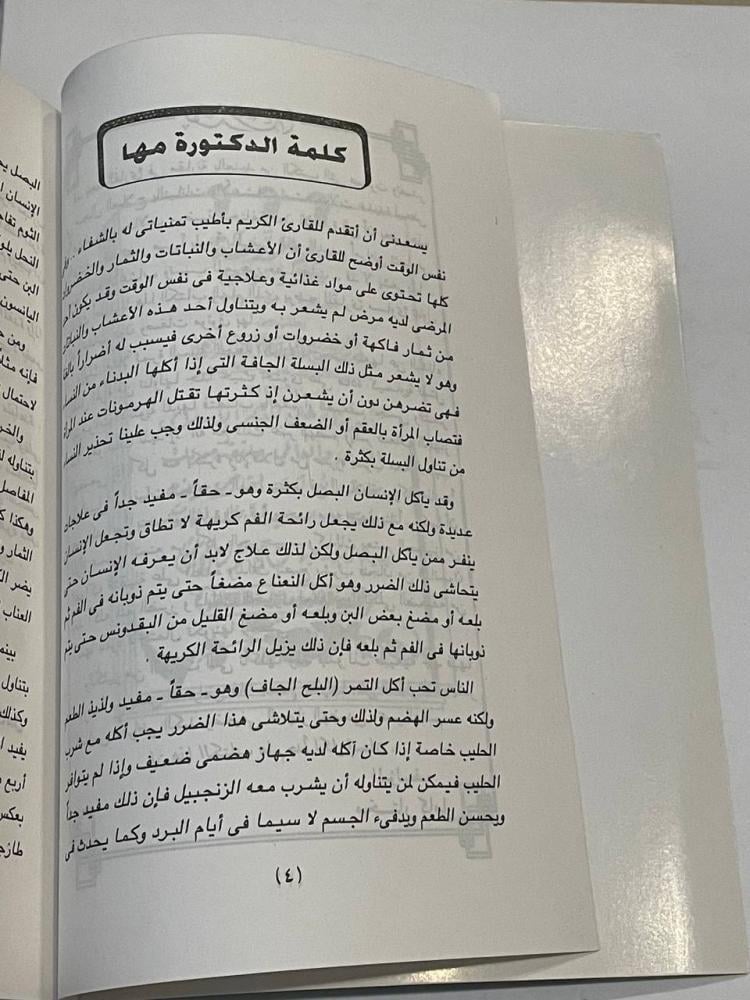 كلمة الدكتورة مها
يسعدنى أن أتقدم للقارئ الكريم بأطيب تمنياتى له بالشفاء ..
نفس الوقت أوضح للقارئ أن الأعشاب والنباتات والثمار والخضروات
كلها تحتوى على مواد غذائية وعلاجية فى نفس الوقت وقد يكون
المرضى لديه مرض لم يشعر به ويتناول أحد هذه الأعشاب
من ثمار فاكهة أو خضروات أو زروع أخرى فيسبب له أضراراً
وهو لا يشعر مثل ذلك البسلة الجافة التى إذا أكلها البدناء من
فهى تضرهن دون أن يشعرن إذ كثرتها تقتل الهرمونات عند
فتصاب المرأة بالعقم أو الضعف الجنسى ولذلك وجب علينا تحذير
من تناول البسلة بكثرة .
وقد يأكل الإنسان البصل بكثرة وهو ـ حقاً ـ مفيد جداً فى علاجات
عديدة ولكنه مع ذلك يجعل رائحة الفم كريهة لا تطاق وتجعل الإنسان
ينفر ممن يأكل البصل ولكن لذلك علاج لابد أن يعرفه الإنسان حتى
يتحاشى ذلك الضرر وهو أكل النعناع مضغاً حتى يتم ذوبانه فى الفم ثم
بلعه أو مضغ بعض البن وبلعه أو مضغ القليل من البقدونس حتى يتم
ذوبانها فى الفم ثم بلعه فإن ذلك يزيل الرائحة الكريهة .
الناس تحب أكل التمر (البلح الجاف) وهو ـ حقاً ـ مفيد ولذيذ الطعم
ولكنه عسر الهضم ولذلك وحتى يتلاشى هذا الضرر يجب أكله مع شرب
الحليب خاصة إذا كان آكله لديه جهاز هضمى ضعيف وإذا لم يتوافر
الحليب فيمكن لمن يتناوله أن يشرب معه الزنجبيل فإن ذلك مفيد جداً
ويحسن الطعم ويدفىء الجسم لا سيما فى أيام البرد وكما يحدث فى
(٤)